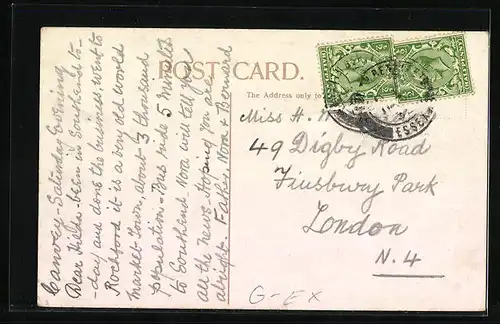 POST CARD.
The Address only to
Canvey - Saturday Evening
Dear Hilda. been in Southend to-
-day and done the business, went to
Rochford it is a very old world
market town, about 3 thousand
population - Bus ride 5 miles
to Southend Nora will tell you
all the news. Hoping you are
alright. Father, Nora & Bernard
Miss H.
49 Digby Road
Finsbury Park
London
N.4
ESSEX
G-EX